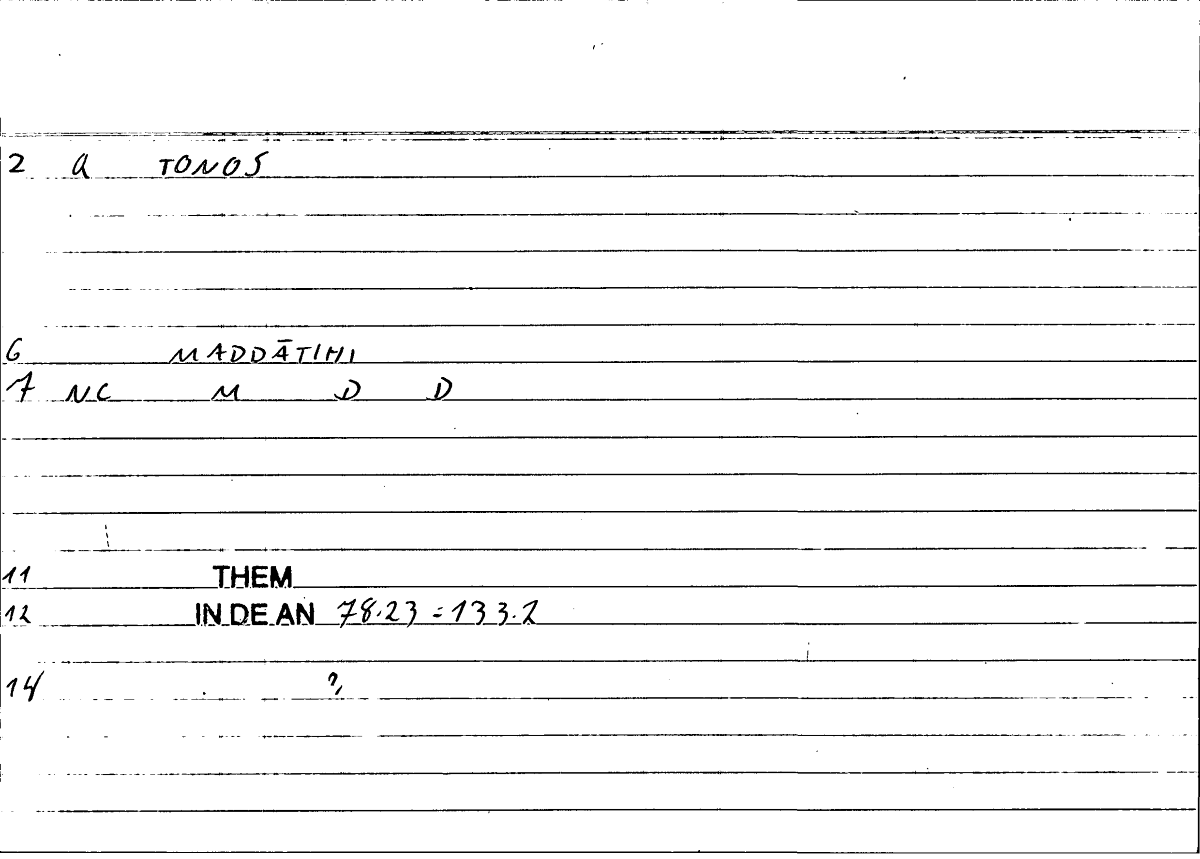 2 a TONOS
6 MADDĀTIHI
7 NC M D D
11 THEM
12 IN DE AN 78.23 = 133.2
14 ?